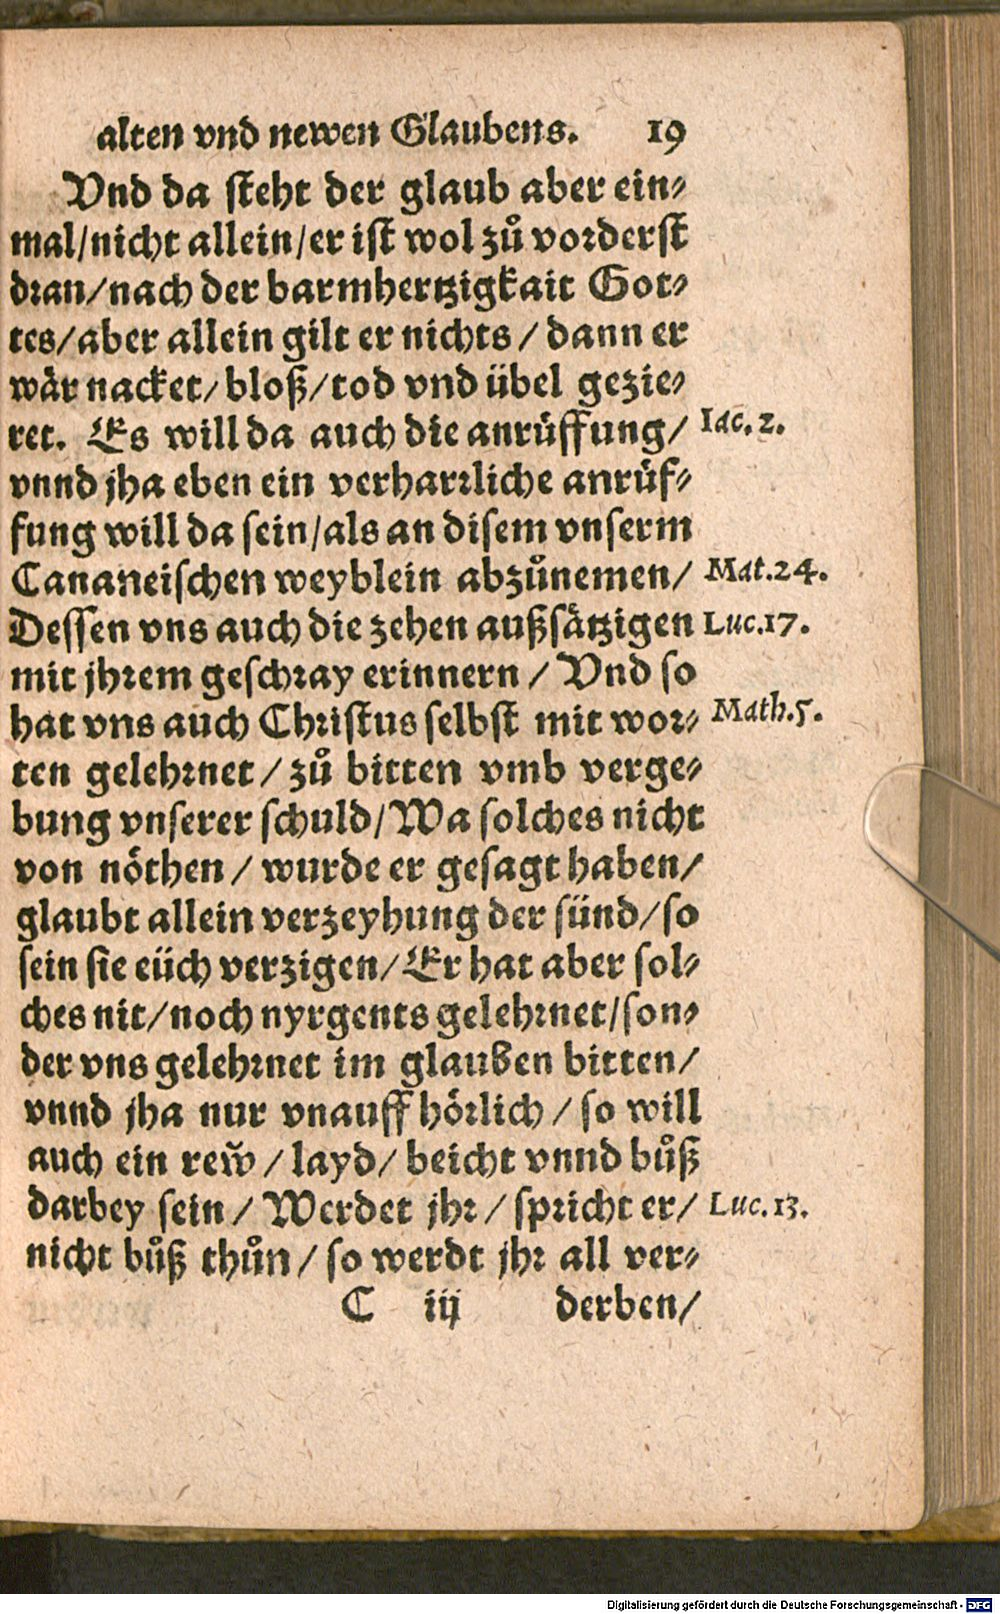 alten vnd newen Glaubens. 19
Vnd da steht der glaub aber ein⸗
mal/nicht allein/er ist wol zů vorderst
dran/nach der barmhertzigkait Got⸗
tes/aber allein gilt er nichts/dann er
wår nacket/bloß/tod vnd übel gezie⸗
ret. Es will da auch die anrůffung/ Iac.2.
vnnd jha eben ein verharrliche anrůf⸗
fung will da sein/als an disem vnserm
Cananeischen weyblein abzůnemen/ Mat.24.
Dessen vns auch die zehen außsåtzigen Luc.17.
mit jhrem geschray erinnern/Vnd so
hat vns auch Christus selbst mit wor⸗ Math.5.
ten gelehrnet/zů bitten vmb verge⸗
bung vnserer schuld/Wa solches nicht
von nöthen/wurde er gesagt haben/
glaubt allein verzeyhung der sünd/so
sein sie eüch verzigen/Er hat aber sol⸗
ches nit/noch nyrgents gelehrnet/son⸗
der vns gelehrnet im glauben bitten/
vnnd jha nur vnauffhörlich/so will
auch ein rew̃/layd/beicht vnnd bůß
darbey sein/Werdet jhr/spricht er/ Luc.13.
nicht bůß thůn/so werdt jhr all ver⸗
C iij derben/
Digitalisierung gefördert durch die Deutsche Forschungsgemeinschaft - DFG